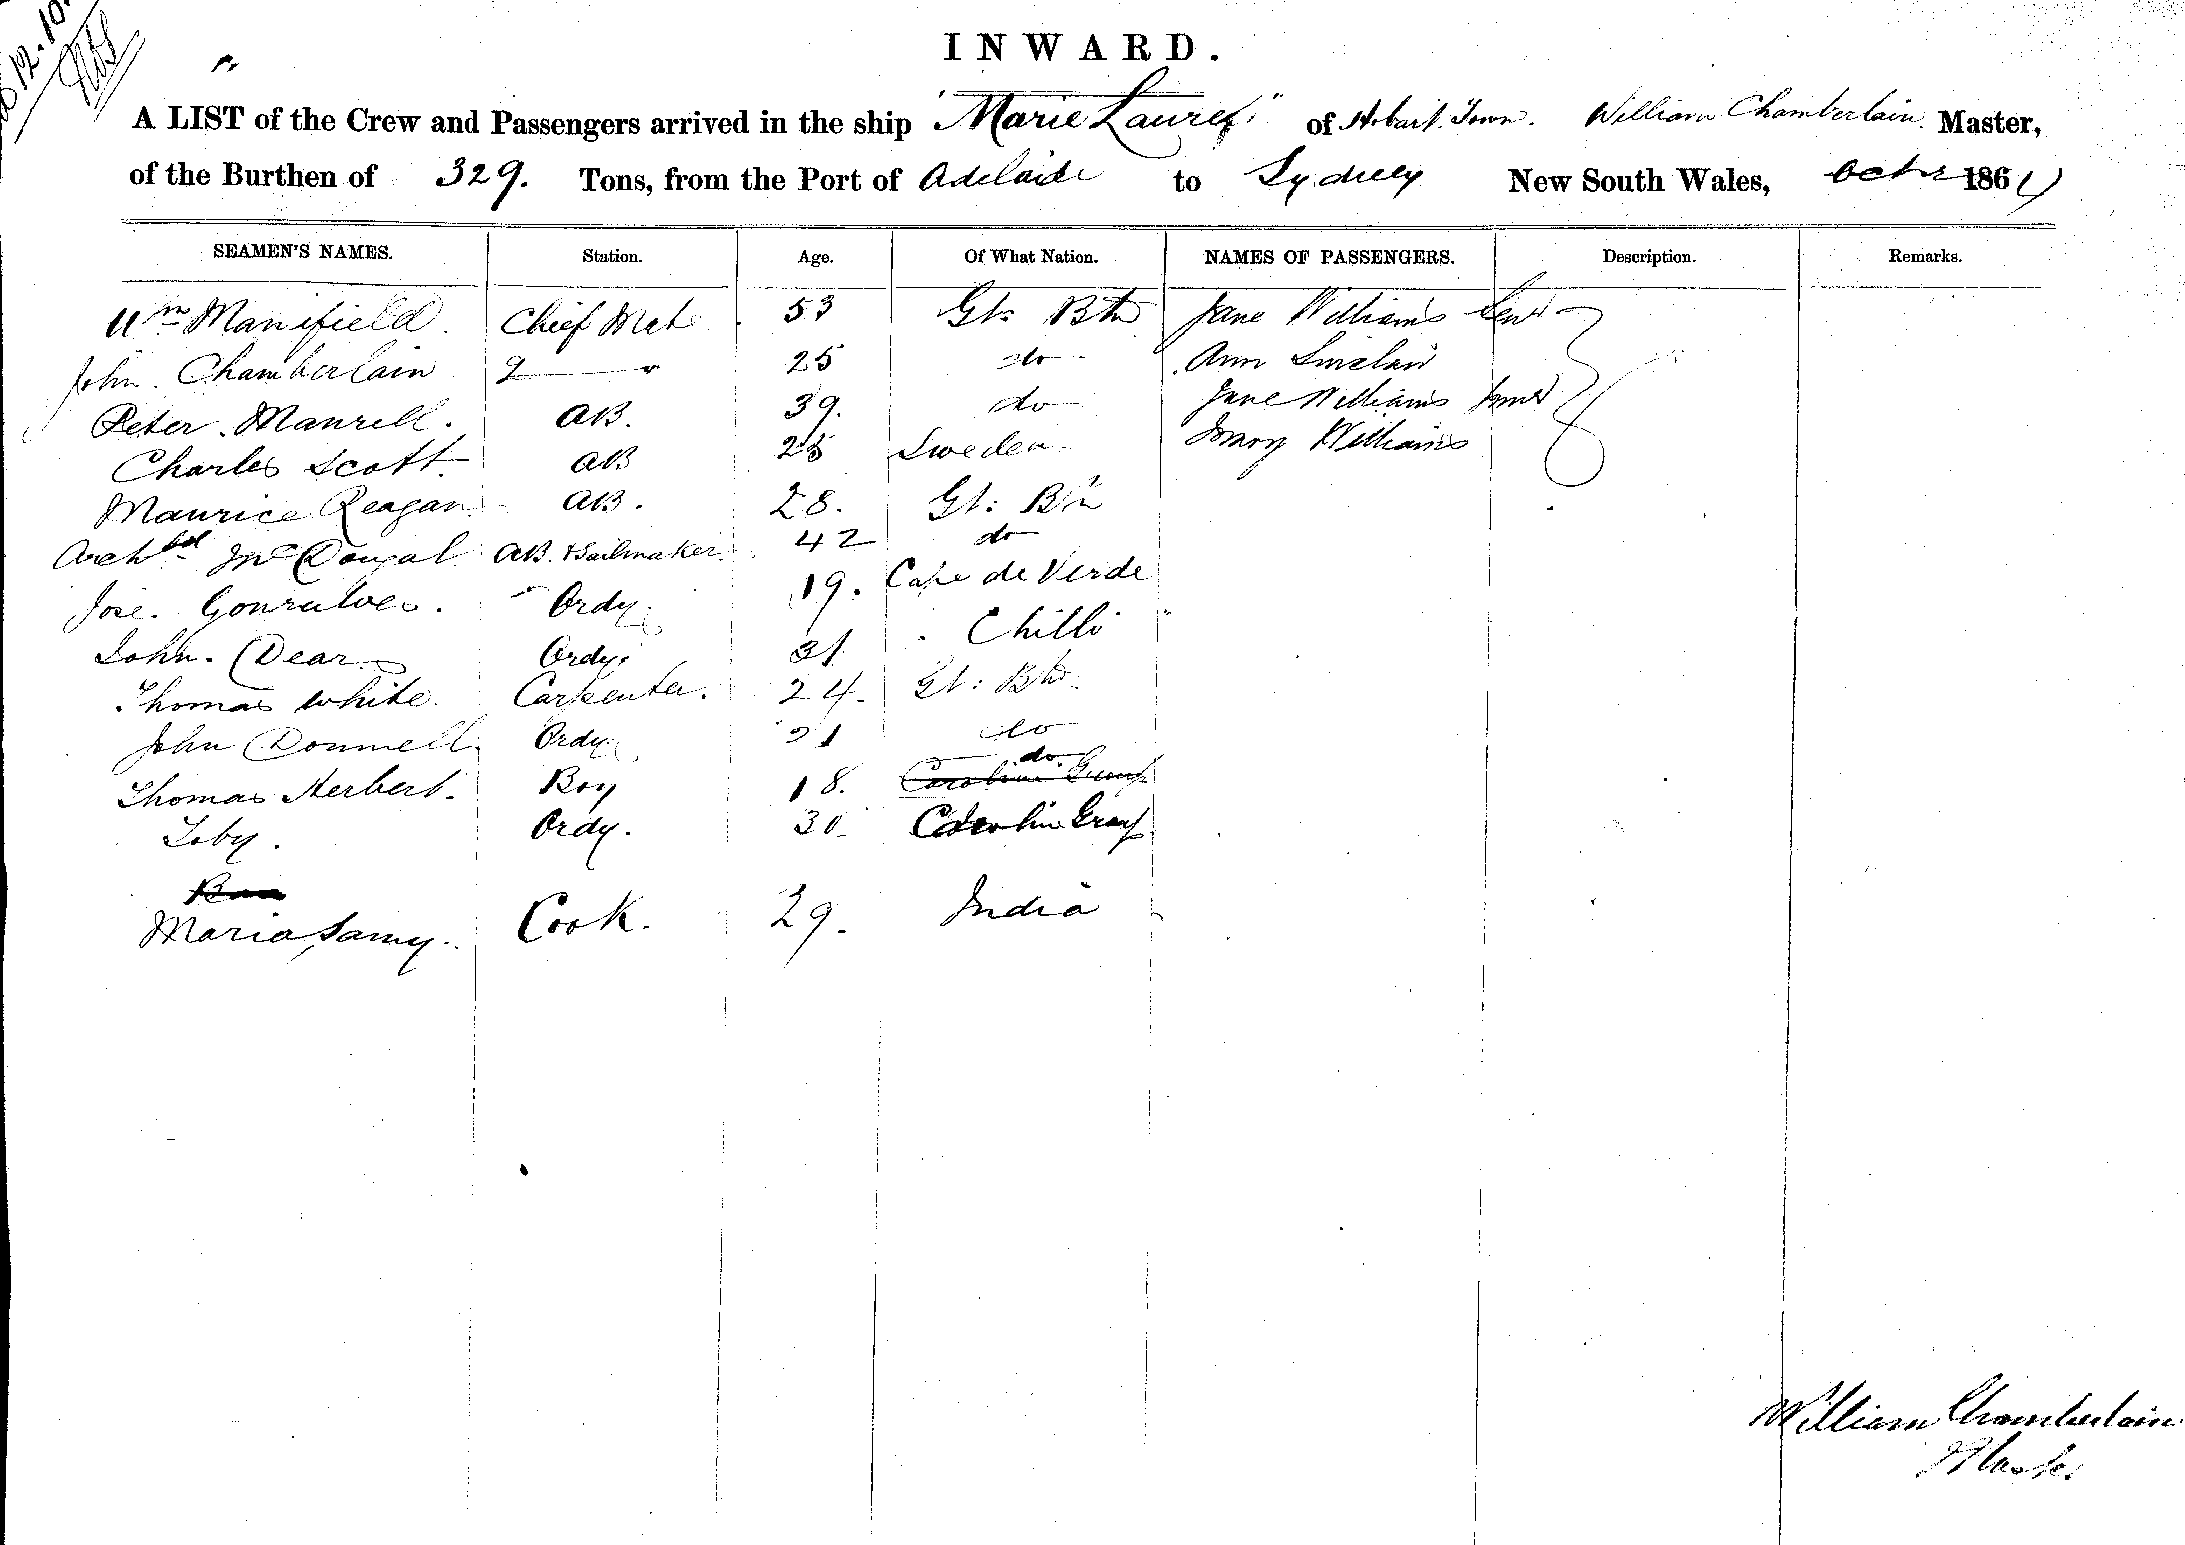 12.10
INWARD.
A LIST of the Crew and Passengers arrived in the ship "Marie Laure" of Hobart Town. William Chamberlain Master,
of the Burthen of 329. Tons, from the Port of Adelaide to Sydney New South Wales, Octr 186
SEAMEN'S NAMES. Station. Age. Of What Nation. NAMES OF PASSENGERS. Description. Remarks.
Wm Manifield. Chief Mate 53 Gt. Btn Jane Williams Senr
John Chamberlain 2 " 25 do Ann Sinclair
Peter Manrell. AB. 39. do Jane Williams Junr
Charles Scott AB 25 Sweden Mary Williams
Maurice Reagan AB. 28. Gt: Btn
Archbd McDougal AB. & Sailmaker 42 do
Jose. Gonsalves. Ordy. 19. Cape de Verde
John. Dear Ordy. 21 Chilli
Thomas White. Carpenter. 24. Gt: Btn
John Donnell Ordy 21 do
Thomas Herbert. Boy 18. do
Toby. Ordy. 30. Carolin Group
Maria Samy. Cook. 29. India
William Chamberlain
Master